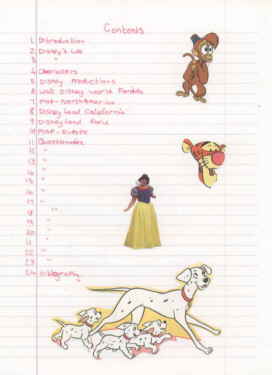 Contents
1 Introduction
2 Disney's Life
3 "
4 Characters
5 Disney Productions
6 Walt Disney World Florida
7 Map - North America
8 Disneyland California
9 Disneyland Paris
10 Map - Europe
11 Questionnaire
12 "
13 "
14 "
15 "
16 "
17 "
18 "
19 "
20 "
21 "
22 "
23 "
24 Bibliography